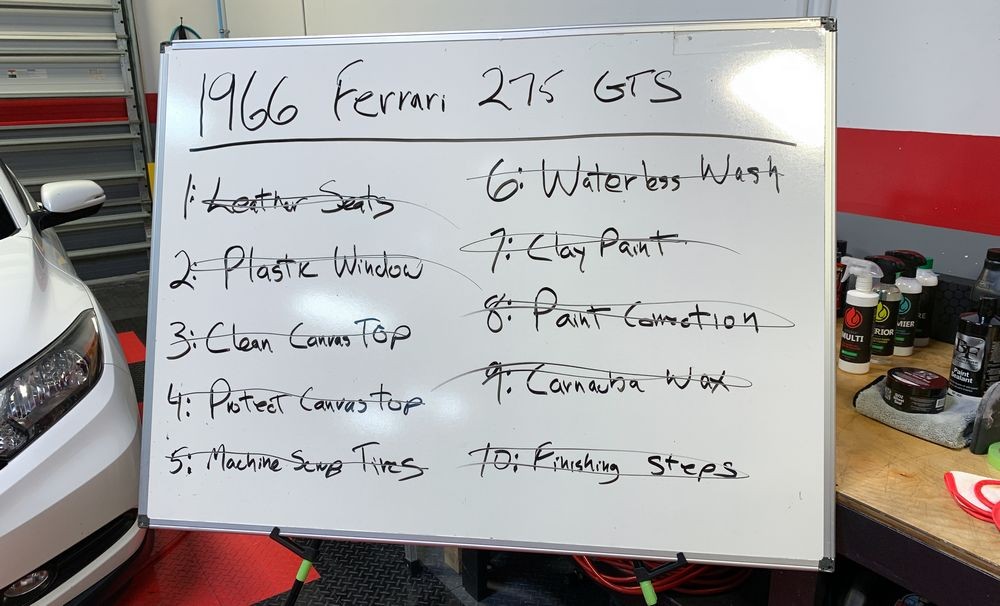 1966 Ferrari 275 GTS
1: Leather Seats
2: Plastic Window
3: Clean Canvas Top
4: Protect Canvas Top
5: Machine Scrub Tires
6: Waterless Wash
7: Clay Paint
8: Paint Correction
9: Carnauba Wax
10: Finishing Steps
MULTI
Paint
Sealant